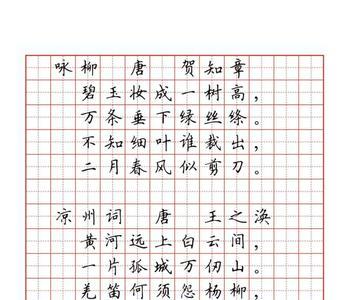 咏柳 唐 贺知章
碧玉妆成一树高，
万条垂下绿丝绦。
不知细叶谁裁出，
二月春风似剪刀。
凉州词 唐 王之涣
黄河远上白云间，
一片孤城万仞山。
羌笛何须怨杨柳，